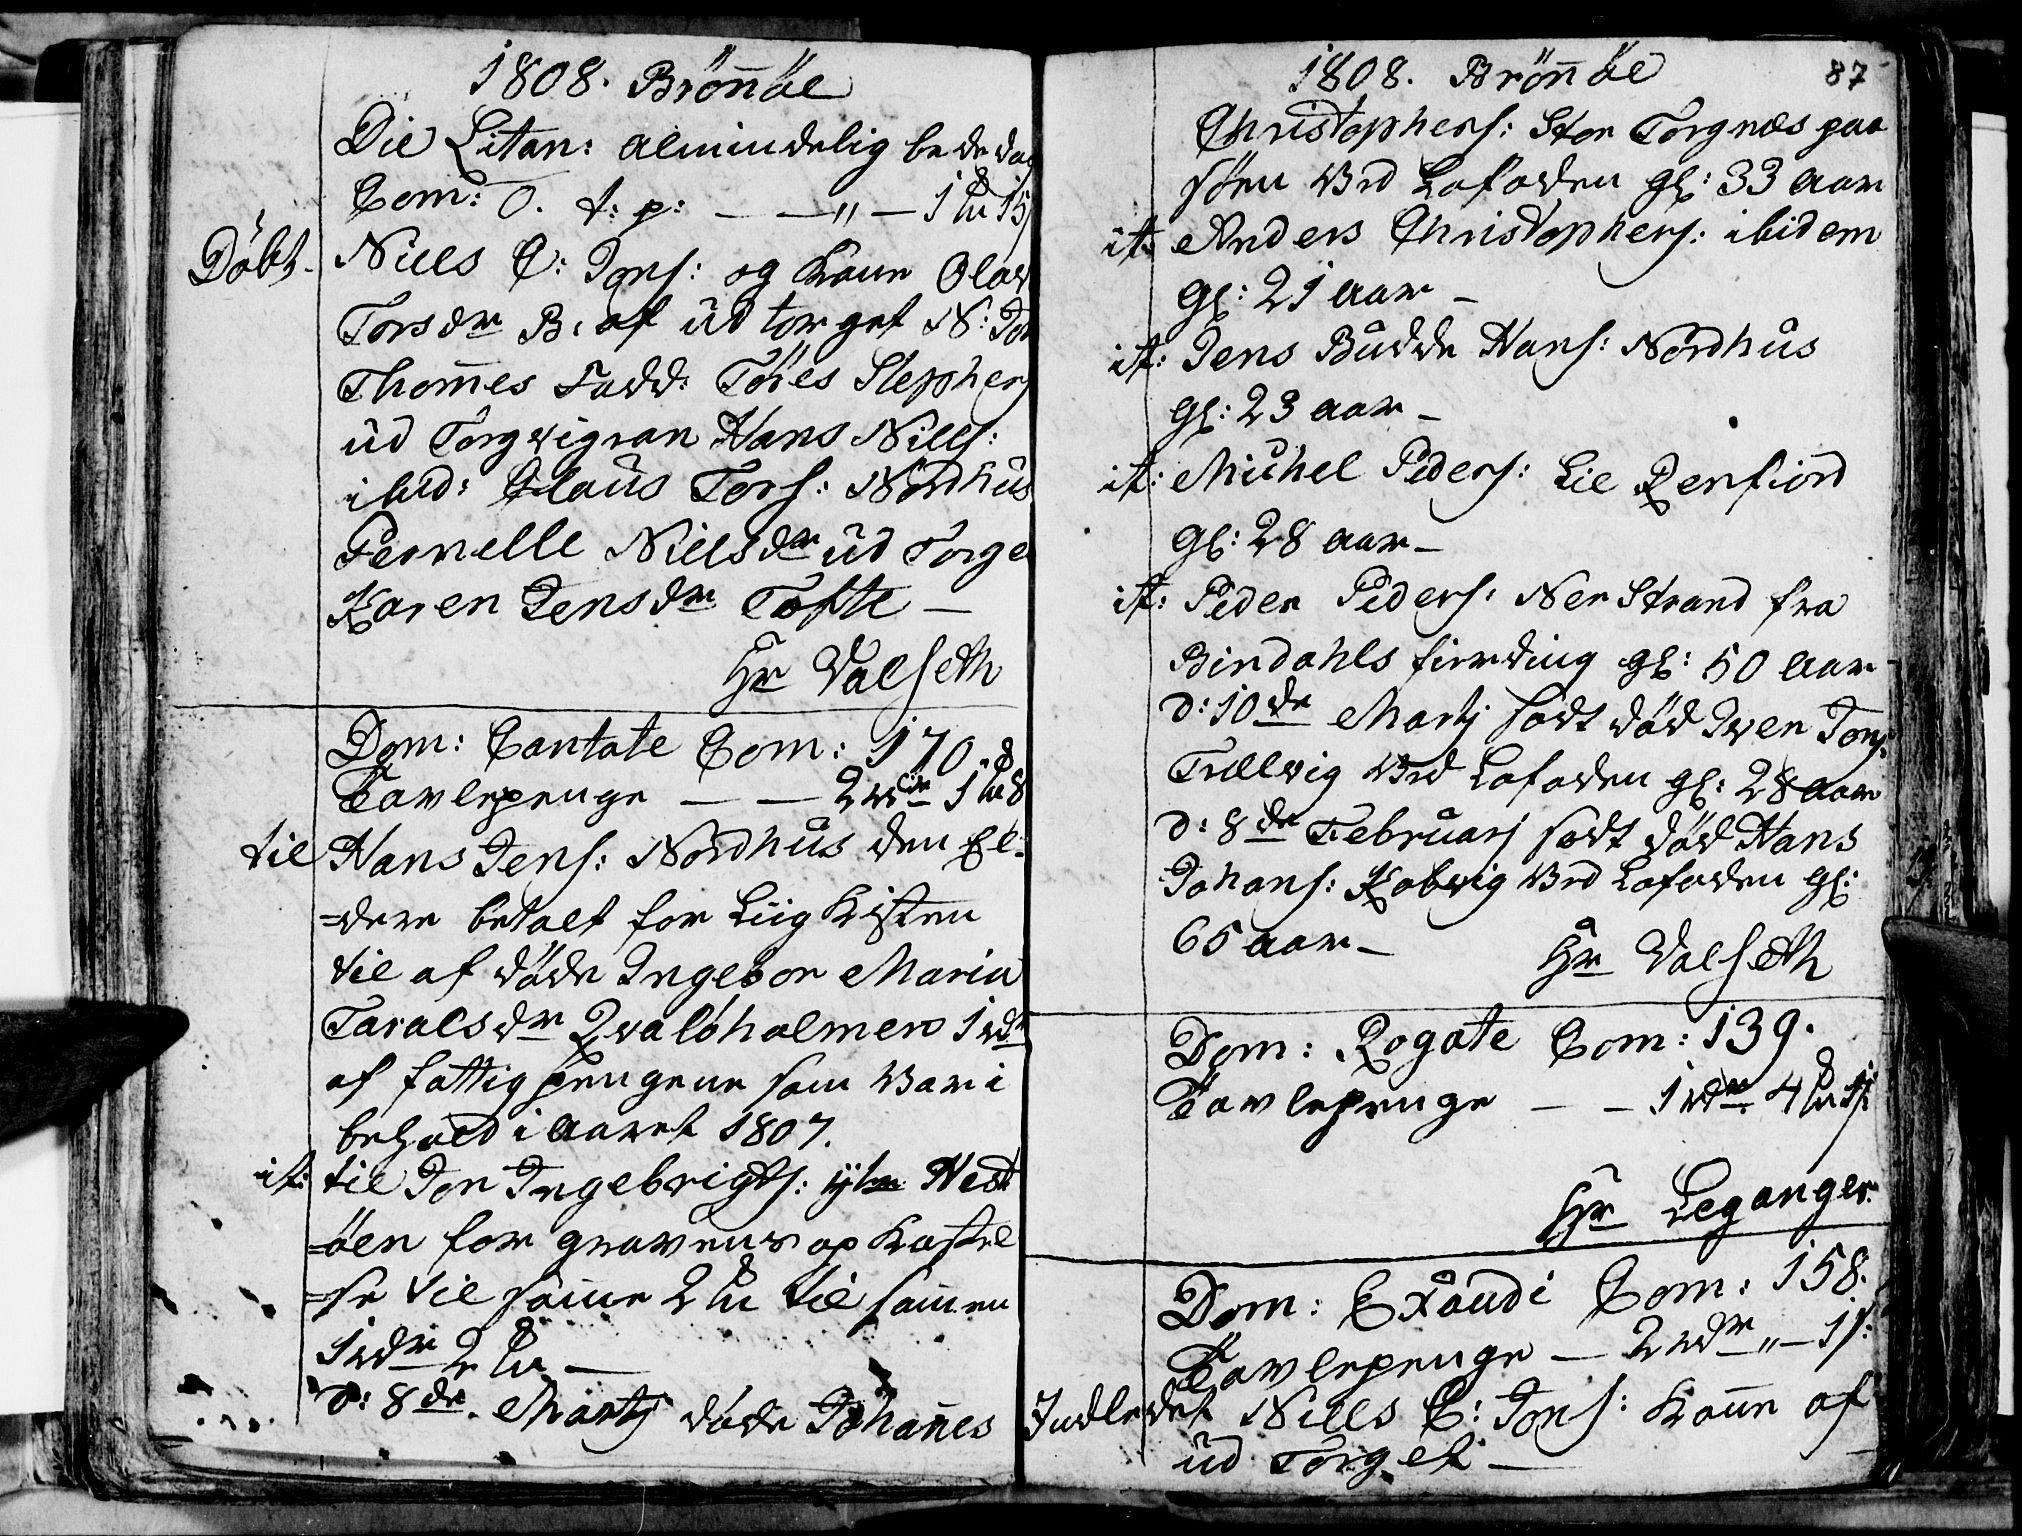 1808. Brönöe
Die Litan: almindelig bededag
Com: 0. t: p: — — " — 1 15
Döbt. Niels C: Jons: og Kone Olav
Torsdr B: af üd torget N: Jon
Thomes Fadd: Töres Stephens
üd Torgvigran Hans Nills:
ibid: Claüs Tors: Nordhüs
Pernelle Nielsdr üd Torge
Karen Jensdr Tofte —
Hr Valseth
Dom: Cantate Com: 170.
Tavlepenge — — 2 rdr 1 8
til Hans Jens: Nordhüs den El-
=dere betalt for Liig Kisten
til afdöde Ingebor Maria
Taralsdr Qvalöholmen 1 rdr
af fattig pengene som var i
behold i aaret 1807.
it: til Jon Ingebrigts: Hest
=öen for gravens opkastel
=se til same 2 til samen
1 rdr 2 —
d: 8de Martj döde Johanes
1808. Brönöe 87
Christophers: Stor Torgnæs paa
söen ved Lofoden gl: 33 aar
it: Anders Christophers: ibidem
gl: 21 aar —
it: Jens Büdde Hans: Nordhüs
gl: 23 aar —
it: Michel Peders: Lie Renfiord
gl: 28 aar —
it: Peder Peders: Ner Strand fra
Bindahls fierding gl: 50 aar
d: 10de Martj sodt död Iver Jons:
Trælvig ved Lofoden gl: 28 aar
d: 8de Februarj sodt död Hans
Johans: Kobvig ved Lofoden gl:
65 aar — Hr Valseth
Dom: Rogate Com: 139.
Tavlepenge — — 1 rdr 4
Hr Leganger.
Dom: Exaudi Com: 158.
Tavlepenge — 2 rdr " — 1 s:
Indledet Nills C: Jons: Kone af
üd Torget —